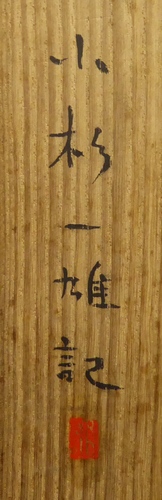 小杉一雄記